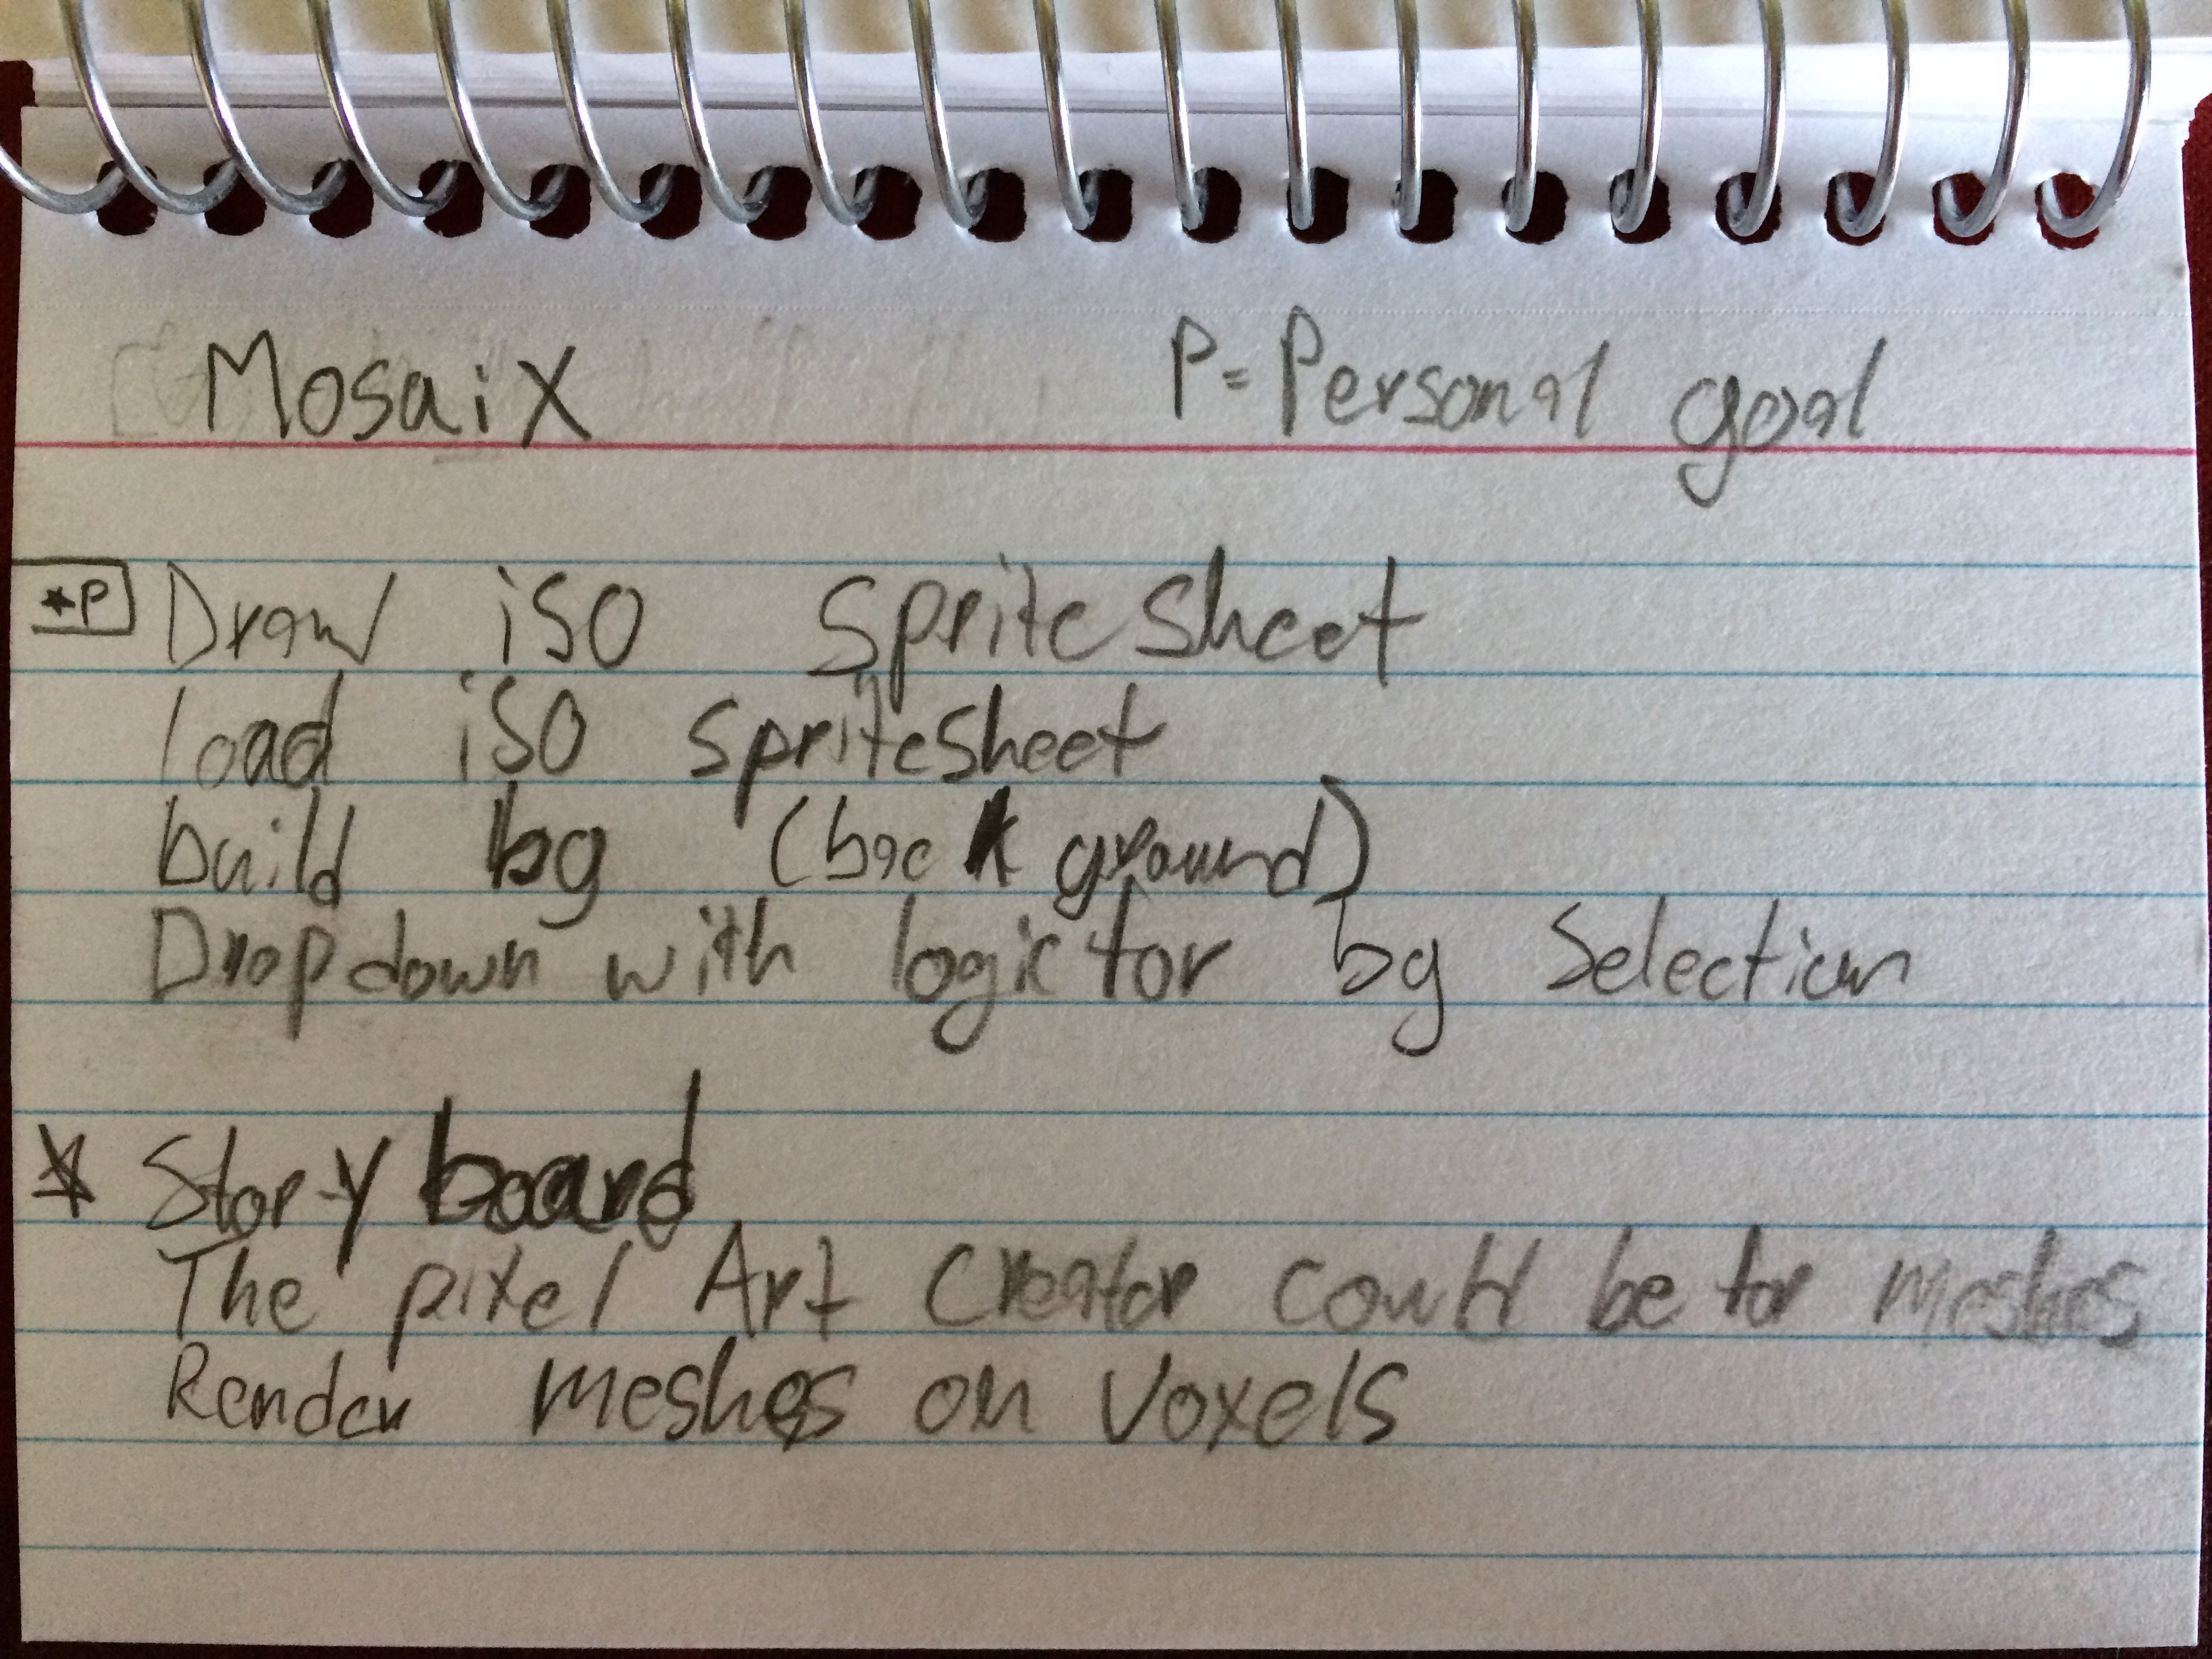 Mosaix P = Personal goal
*P Draw iso Spritesheet
load iso spritesheet
build bg (background)
Dropdown with logic for bg Selection
* Storyboard
The pixel Art Creator could be for meshes
Render meshes on Voxels